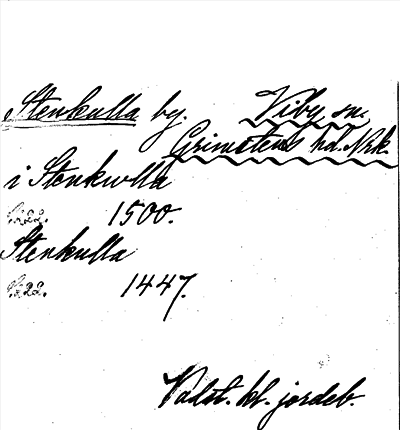 Stenkulla by. Viby sn.
Grimstens hd. Nrk.
i Stenkulla
1500.
Stenkulla
1447.
Vadst. kl. jordeb.